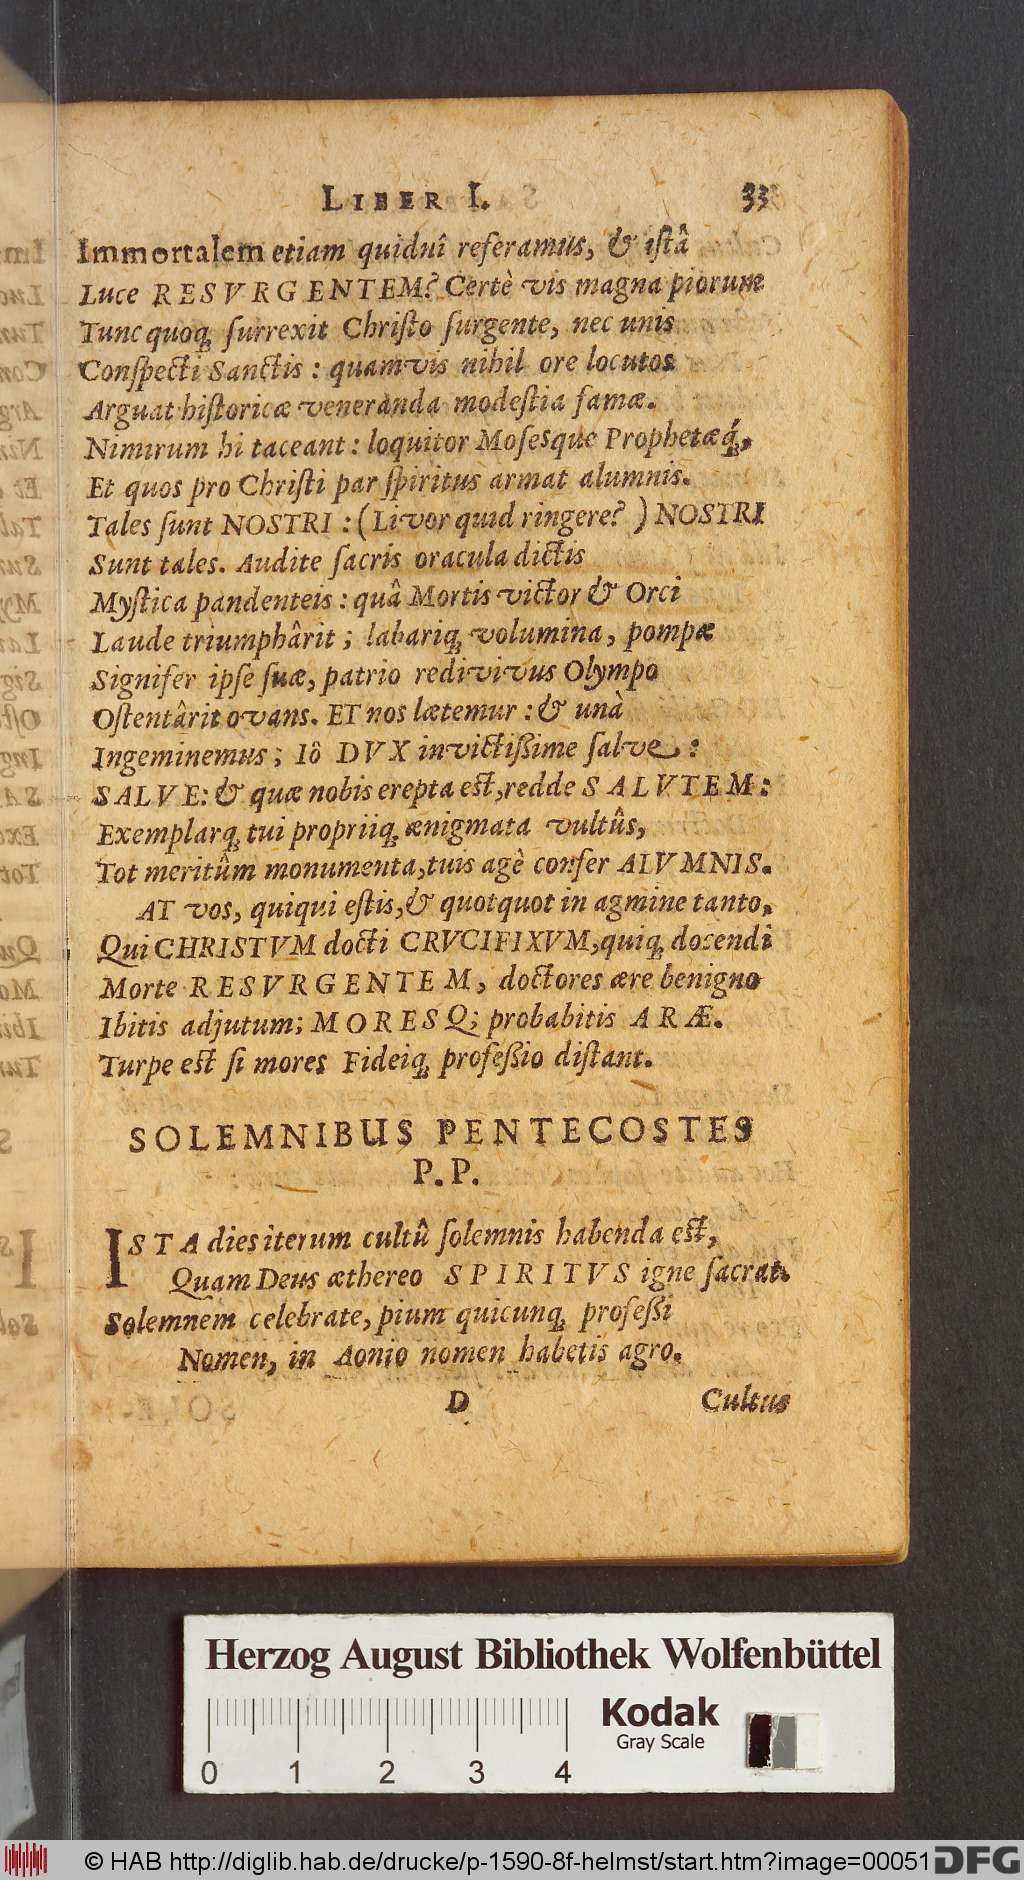 LIBER I. 33
Immortalem etiam quiduî referamus, & iſtâ
Luce RESVRGENTEM? Certè vis magna piorum
Tunc quoq; ſurrexit Chriſto ſurgente, nec unis
Conſpecti Sanctis : quamvis nihil ore locutos
Arguat hiſtoricæ veneranda modeſtia famæ.
Nimirum hi taceant : loquitor Moſesque Prophetæq́;,
Et quos pro Chriſti par ſpiritus armat alumnis.
Tales ſunt NOSTRI : (Livor quid ringere? ) NOSTRI
Sunt tales. Audite ſacris oracula dictis
Myſtica pandenteis : quâ Mortis victor & Orci
Laude triumphârit ; labariq; volumina, pompæ
Signifer ipſe ſuæ, patrio redivivus Olympo
Oſtentârit ovans. ET nos lætemur : & unà
Ingeminemus ; Iô DVX invictißime ſalve :
SALVE: & quæ nobis erepta eſt, redde SALVTEM:
Exemplarq; tui propriiq; ænigmata vultûs,
Tot meritûm monumenta, tuis agè confer ALVMNIS.
AT vos, quiqui eſtis, & quotquot in agmine tanto,
Qui CHRISTVM docti CRVCIFIXVM, quiq; docendi
Morte RESVRGENTEM, doctores ære benigno
Ibitis adjutum; MORESQ; probabitis ARÆ.
Turpe eſt ſi mores Fideiq; profeßio diſtant.
SOLEMNIBUS PENTECOSTES
P. P.
ISTA dies iterum cultû ſolemnis habenda eſt,
Quam Deus æthereo SPIRITVS igne ſacrat.
Solemnem celebrate, pium quicunq; profeßi
Nomen, in Aonio nomen habetis agro.
D Cultus
Herzog August Bibliothek Wolfenbüttel
Kodak
Gray Scale
0 1 2 3 4
© HAB http://diglib.hab.de/drucke/p-1590-8f-helmst/start.htm?image=00051 DFG